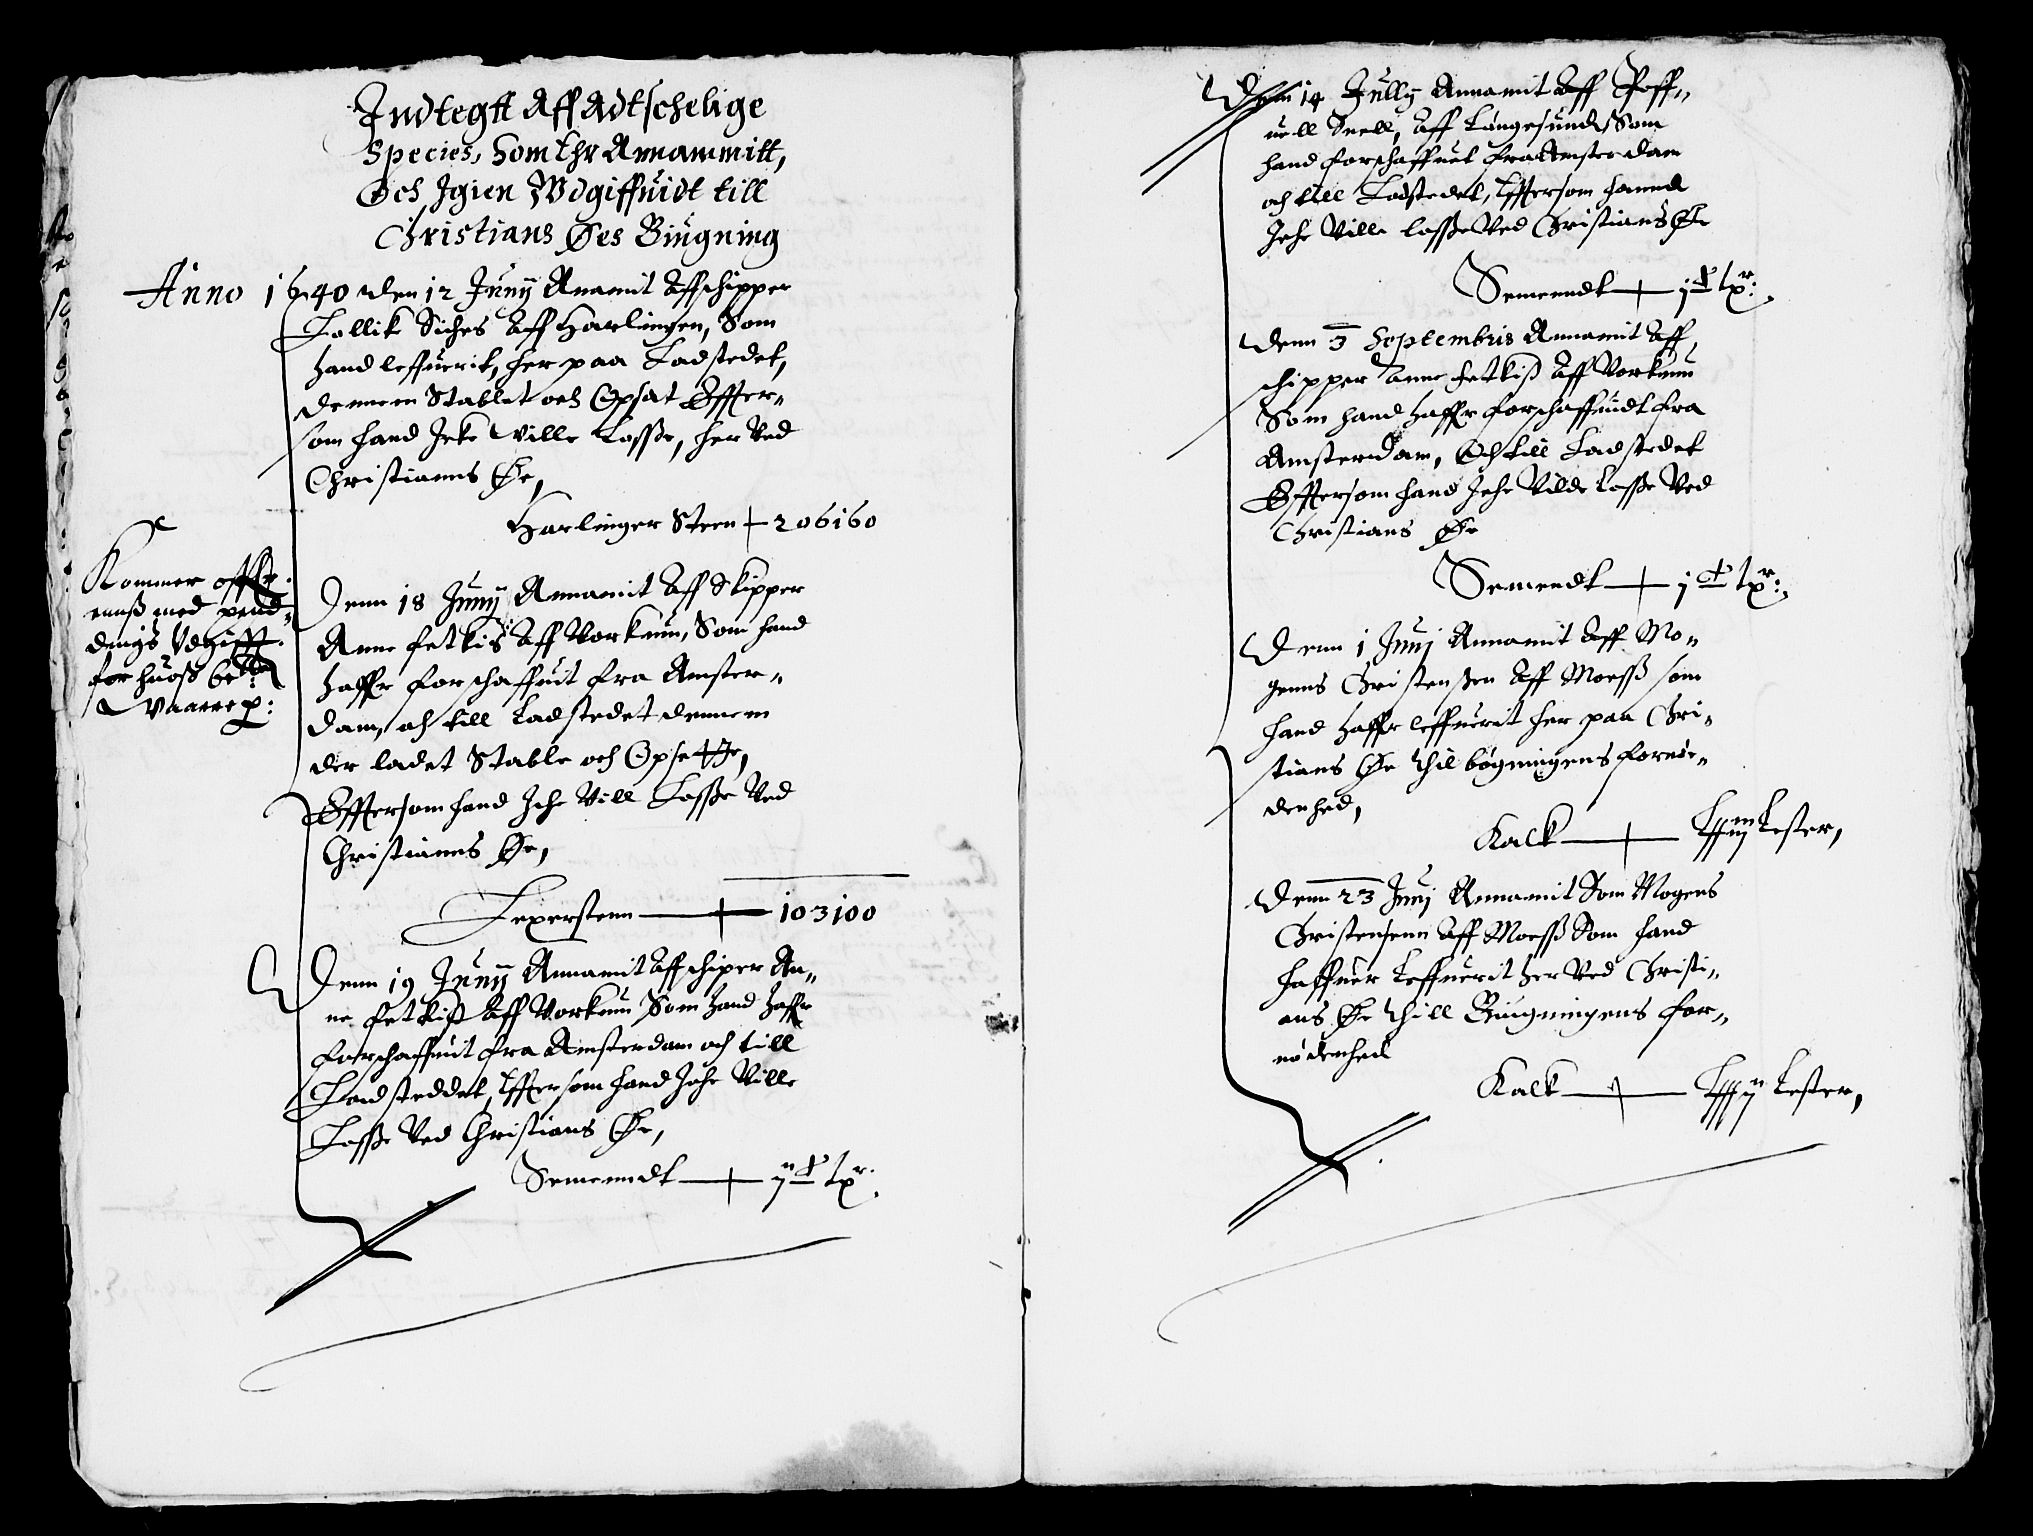 Indtegtt Aff Adtschelige
Species, Som Ehr Annammitt,
Och Igien Wdgiffuidt till
Christians Øes Biugning
Anno 1640 den 12 Junij Anamit Aff schipper
Lollik Siches Aff Harlingen, Som
hand leffuerit, her paa Ladstedet,
dennem Stablet och Opsat Effter-
som hand Icke Ville Losse, her Ved
Christianns Øe,
Harlinger Steen 206160
Kommer offuer
enss med pend-
dings Vdgifft
for huoss
Vaarre
Denn 18 Junij Annamit Aff Skipper
Anne fetkis Aff Vorkum, Som hand
haffr forschaffuit fra Amster-
dam, och till Ladstedet dennem
der ladet Stable och Opsette,
Efftersom hand Iche Vill Losse Ved
Christianns Øe,
Leperstenn 103100
Denn 19 Junij Annamit Aff schiper An-
ne fetkiss Aff Vorkum Som hand haffr
forschaffuit fra Amsterdam och till
Ladsteddet, Efftersom hand Iche Ville
Losse Ved Christians Øe,
Semenndt
Denn 14 Jully Annamit Aff Poff-
uell Snell, Aff Langesundt Som
hand forschaffuet fra Amsterdam
och till Ladstedet, Efftersom hannd
Iche Ville losse Ved Christians Øe
Semenndt
Denn 3 Septembris Annamit Aff
schipper Anne fetkiss Aff Vorkum
Som hand haffr forschaffuudt fra
Amsterdam, Och till Ladstedet
Efftersom hand Iche Vilde Losse Ved
Christians Øe
Semendt
Denn 1 Junij Annamit Aff Mo-
genns Christenssen Aff Moess som
hand haffr leffuerit her paa Chri-
stians Øe thil bøgningens fornø-
denhed,
Kalk Lester,
Denn 23 Junij Annamit Som Mogens
Christensenn Aff Moess Som hand
haffuer Leffuerit her Ved Christi-
ans Øe thill Biugningens for-
nødenhed
Kalk Lester,